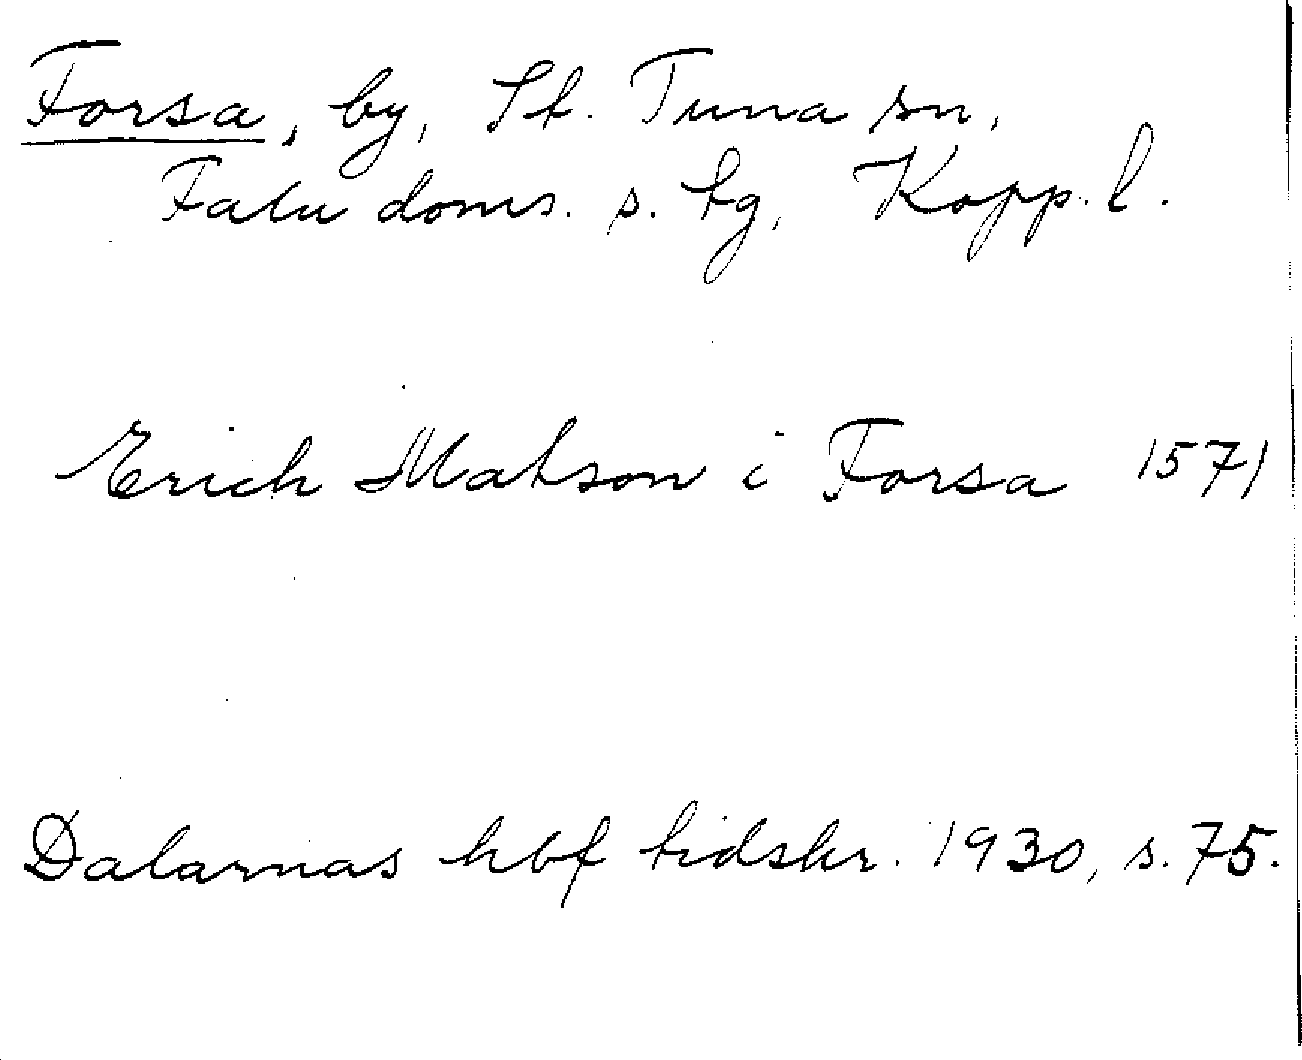 Forsa, by, St. Tuna sn,
Falu doms. s. tg, Kopp. l.
Erich Matson i Forsa 1571
Dalarnas hbf tidskr. 1930, s. 75.